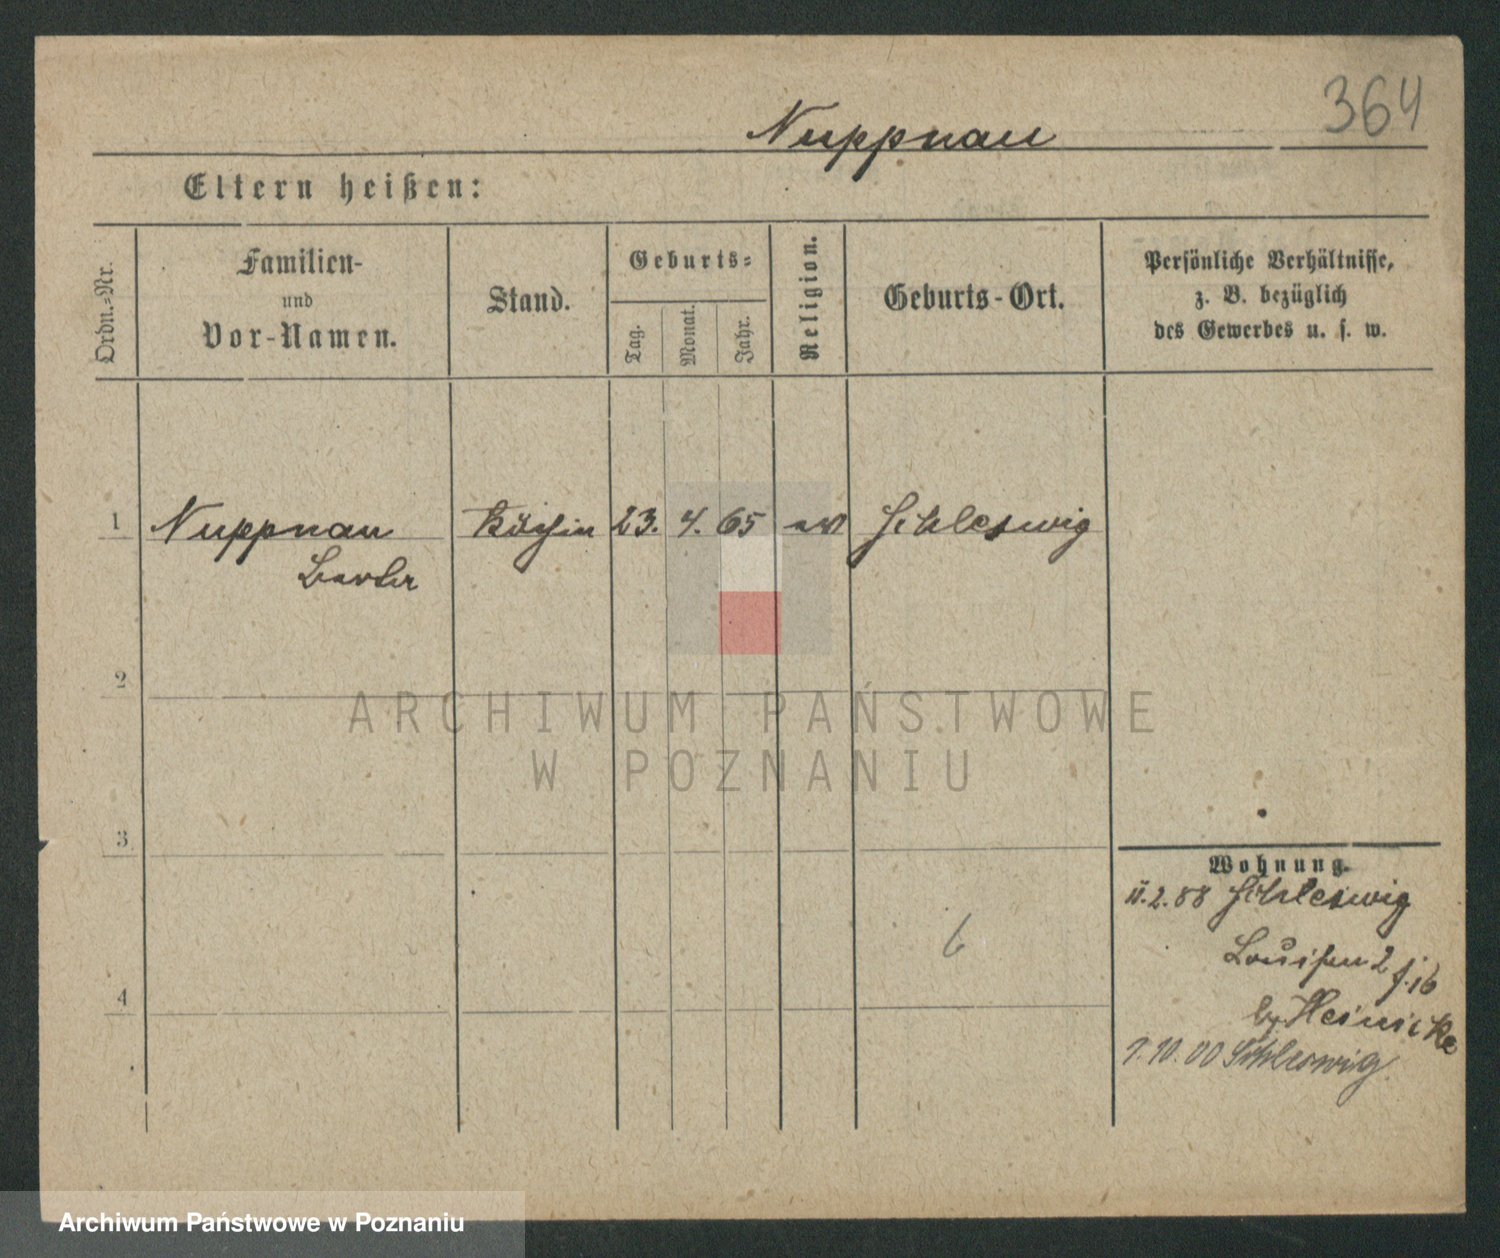 364
Nuppnau
Eltern heißen:
Ordn.=Nr.
Familien-
und
Vor-Namen.
Stand.
Geburts=
Tag.
Monat.
Jahr.
Religion.
Geburts-Ort.
Persönliche Verhältnisse,
z. B. bezüglich
des Gewerbes u. s. w.
1 Nuppnau Köchin 23. 4. 65 ev Schleswig
2
ARCHIWUM PAŃSTWOWE
W POZNANIU
3
Wohnung.
Schleswig
6
Louisen
4
Heinicke
1.10.00 Schleswig
Archiwum Państwowe w Poznaniu